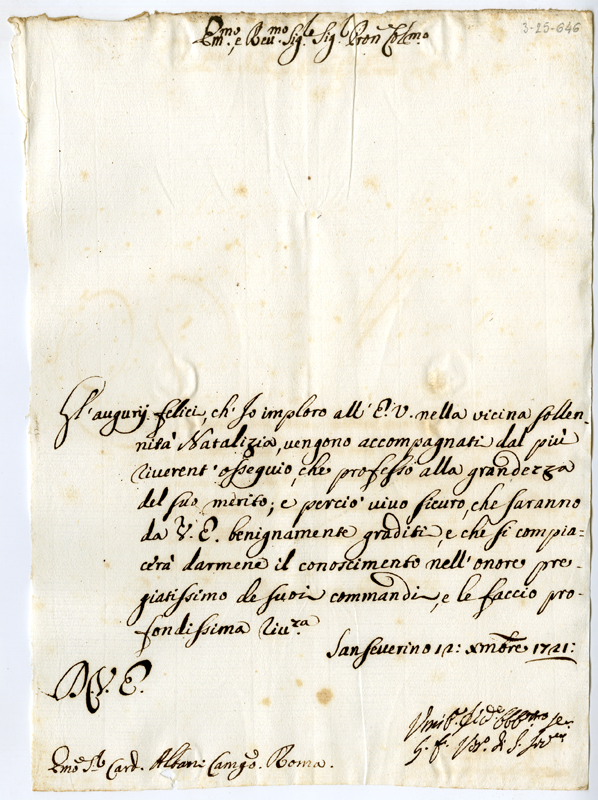 3-25-646
Em.mo, e Rev.mo Sig.re Sig.r Pron Col.mo
Gl'augurij felici, ch'Io imploro all'E.V. nella vicina sollen-
nità Natalizia, vengono accompagnati dal più
riverent'ossequio, che professo alla grandezza
del suo merito; e perciò vivo sicuro, che saranno
da V.E. benignamente graditi, e che si compia=
cerà darmene il conoscimento nell'onore pre-
giatissimo de suoi commandi, e le faccio pro-
fondissima riv.za
San Severino 12: Xmbre 1721:
D.V.E.
Umil.o
Emo Sr Card. Albani Camgo. Roma.